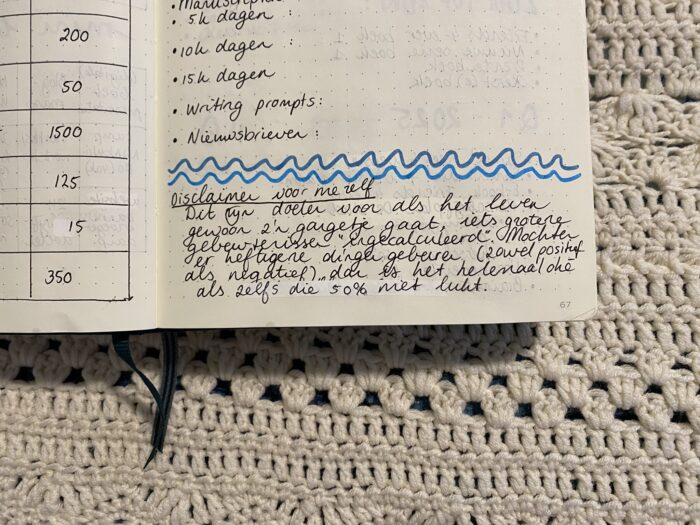 200
50
1500
125
15
350
• 5k dagen :
• 10k dagen :
• 15k dagen
• Writing prompts:
• Nieuwsbrieven :
Disclaimer voor mezelf
Dit zijn doelen voor als het leven
gewoon z'n gangetje gaat, iets grotere
gebeurtenissen "ingecalculeerd". Mochten
er heftigere dingen gebeuren, (zowel positief
als negatief), dan is het helemaal oké
als zelfs die 50% niet lukt.
67